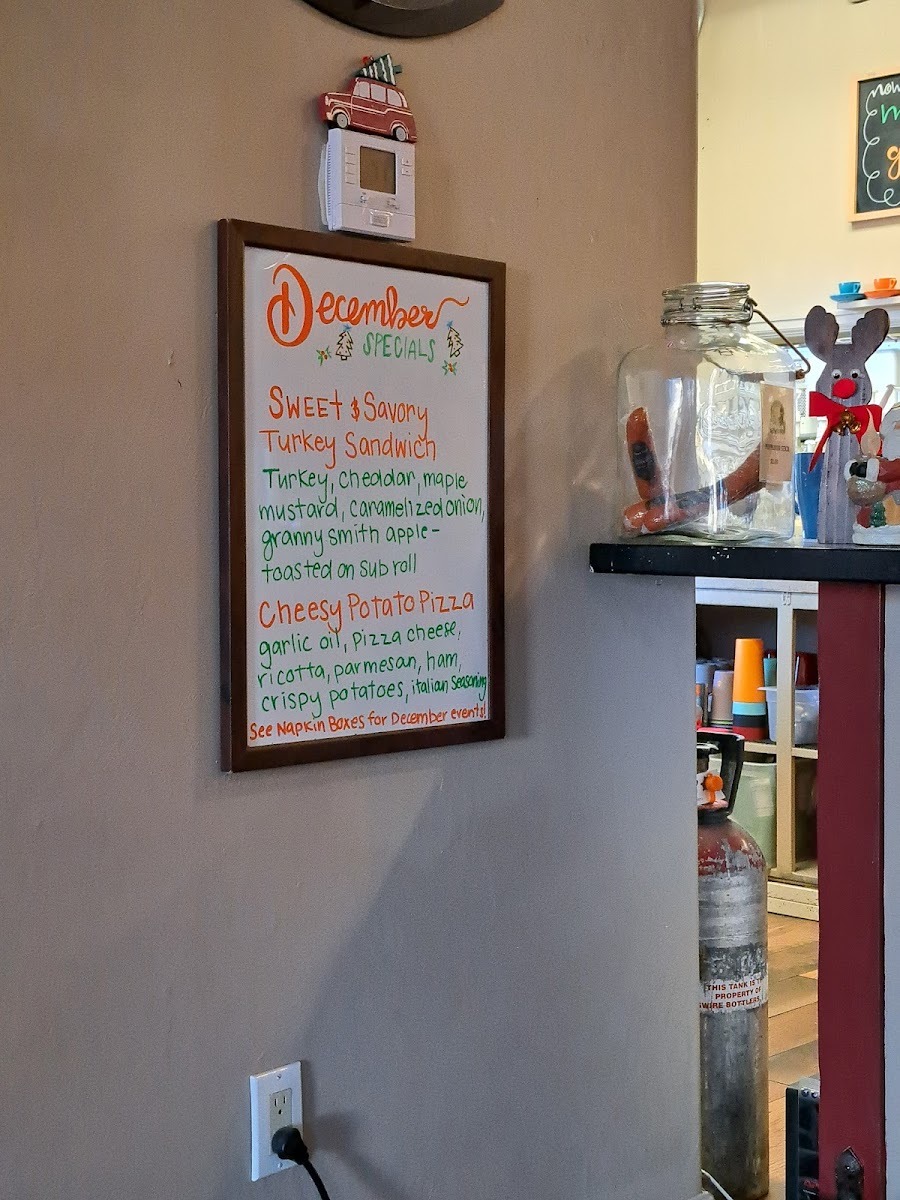 December
SPECIALS
Sweet & Savory
Turkey Sandwich
Turkey, cheddar, maple
mustard, caramelized onion,
granny smith apple-
toasted on sub roll
Cheesy Potato Pizza
garlic oil, pizza cheese,
ricotta, parmesan, ham,
crispy potatoes, italian seasoning
See Napkin Boxes for December events!
now
THIS TANK IS
PROPERTY OF
SWIRE BOTTLERS